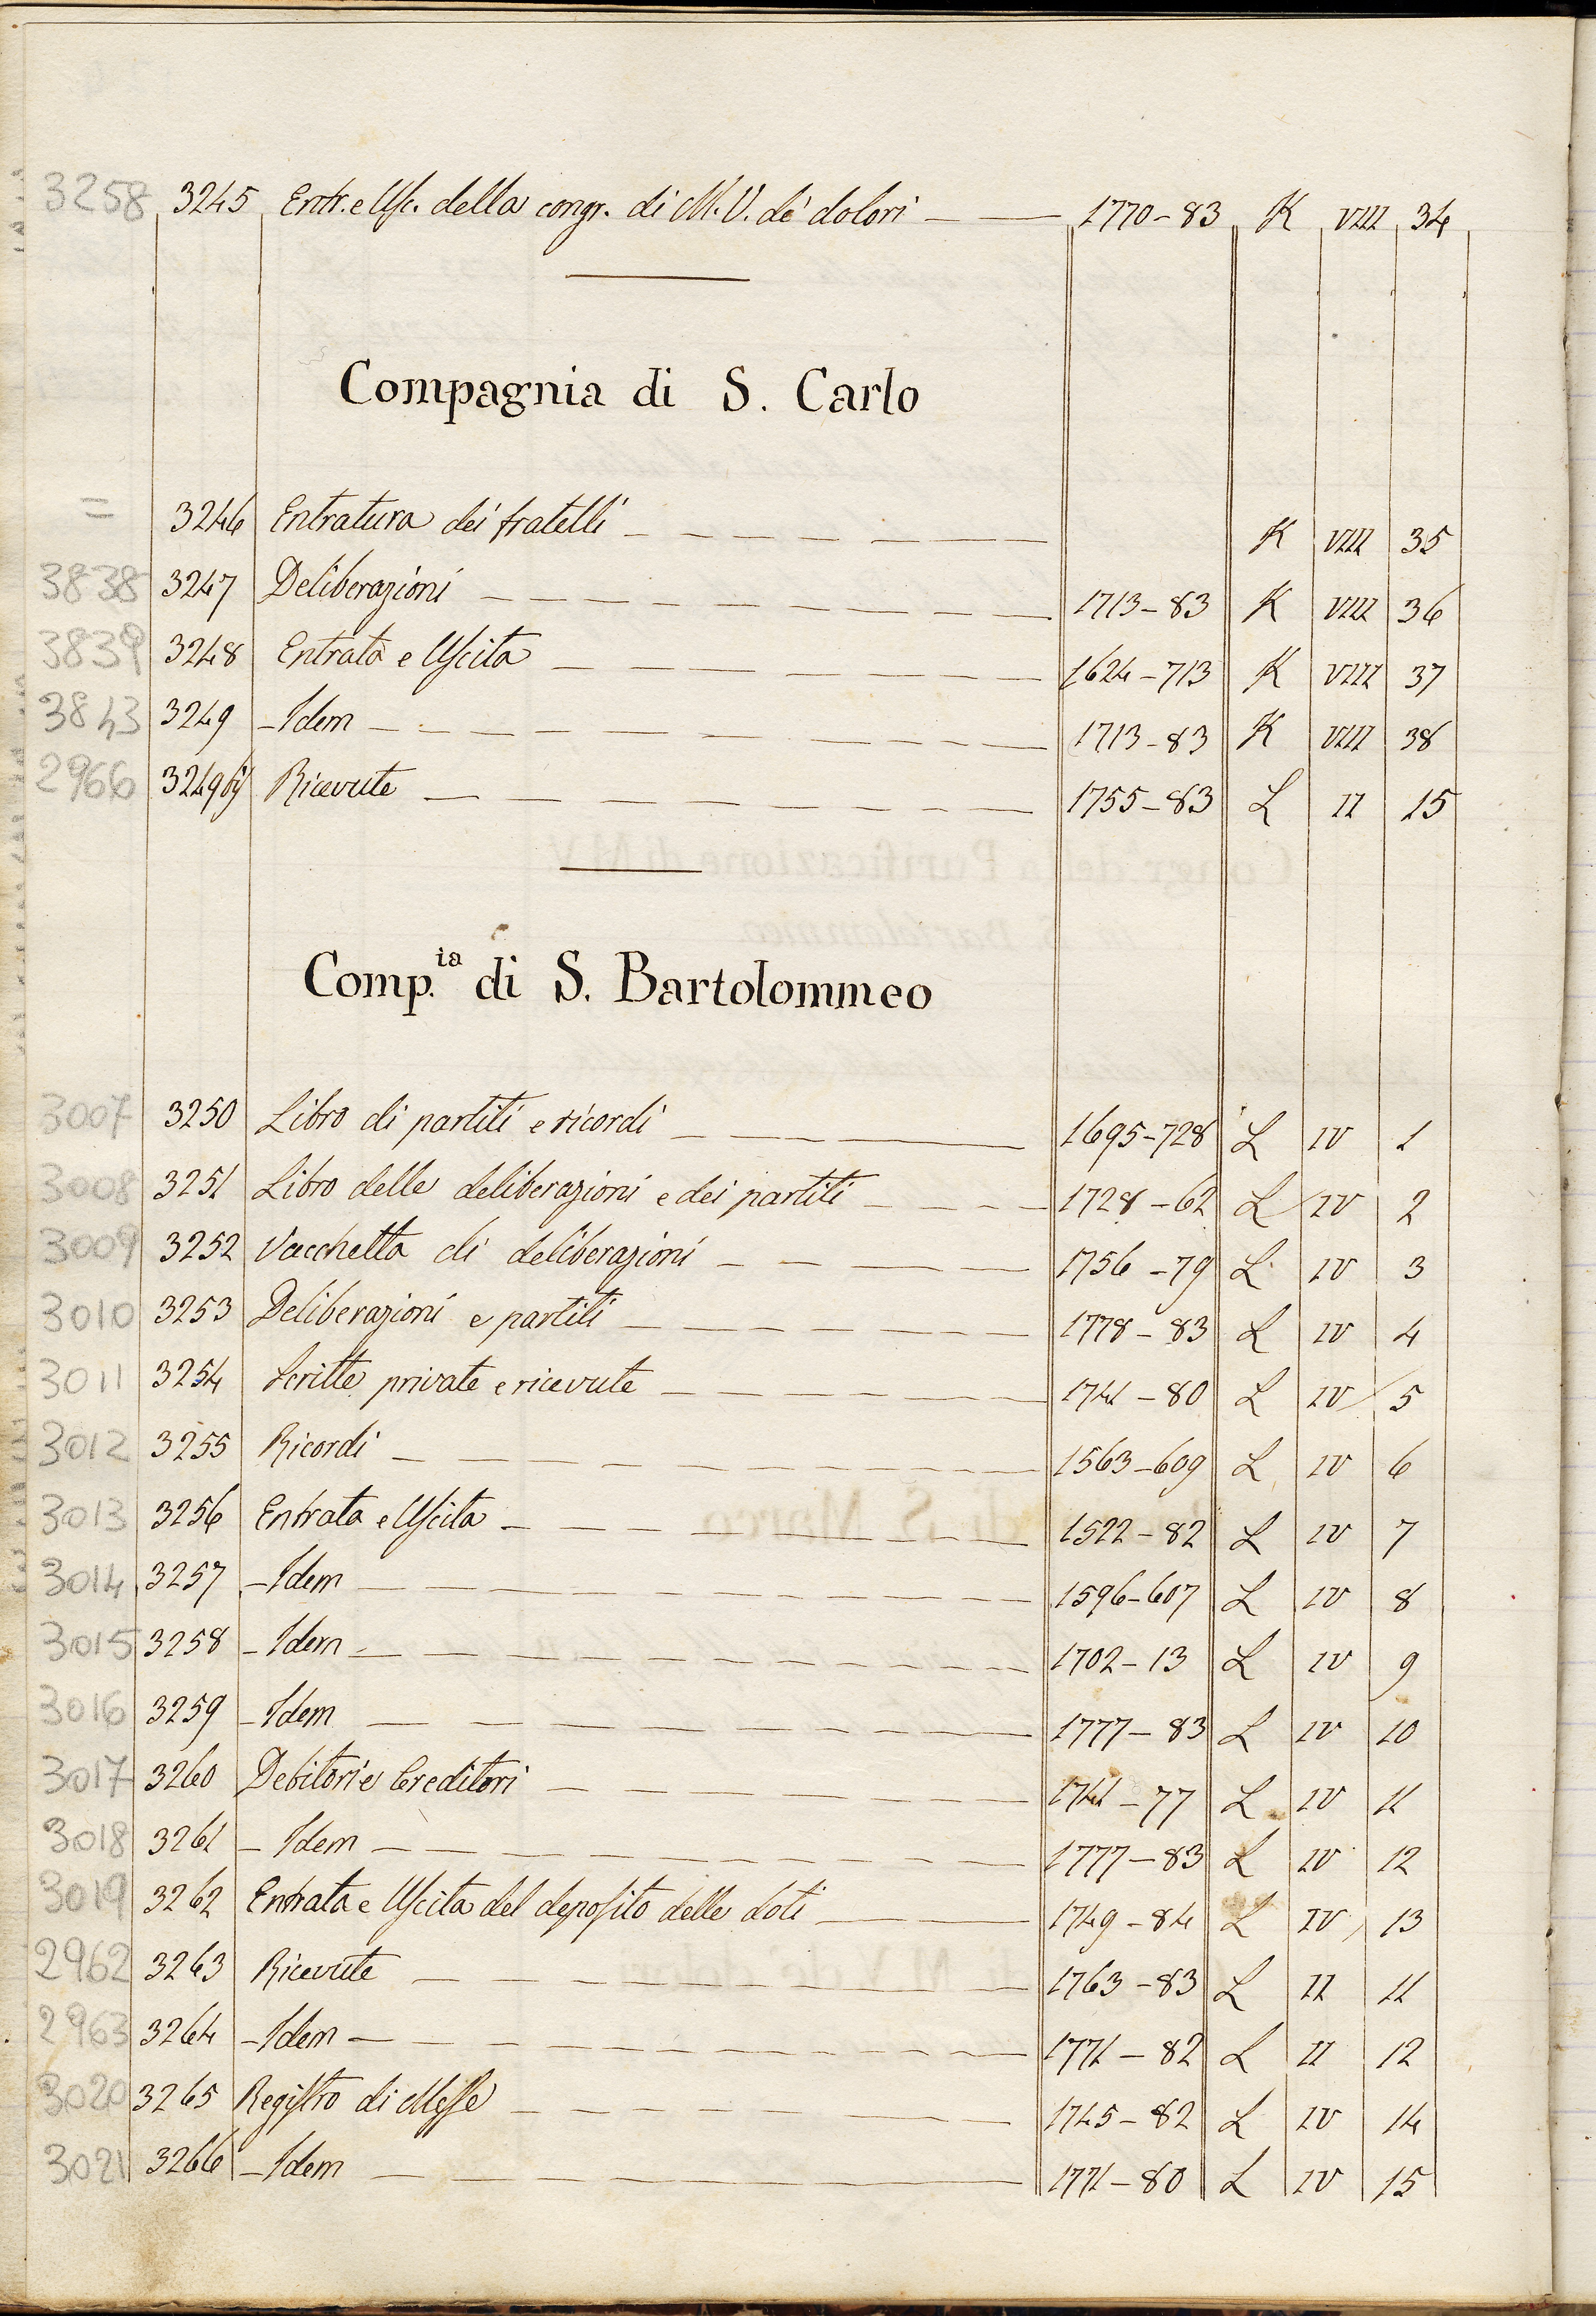 3258 3245 Entr. e Usc. della congr. di M. V. de' dolori 1770-83 K VIII 34
Compagnia di S. Carlo
= 3246 Entratura dei fratelli K VIII 35
3838 3247 Deliberazioni 1713-83 K VIII 36
3839 3248 Entrata e Uscita 1624-713 K VIII 37
3843 3249 - Idem - 1713-83 K VIII 38
2966 3249 Ricevute 1755-83 L II 15
Comp.ia di S. Bartolommeo
3007 3250 Libro di partiti e ricordi 1695-728 L IV 1
3008 3251 Libro delle deliberazioni e dei partiti 1728-62 L IV 2
3009 3252 Vacchetta di deliberazioni 1756-79 L IV 3
3010 3253 Deliberazioni e partiti 1778-83 L IV 4
3011 3254 Scritte private e ricevute 1741-80 L IV 5
3012 3255 Ricordi 1563-609 L IV 6
3013 3256 Entrata e Uscita 1522-82 L IV 7
3014 3257 - Idem 1596-607 L IV 8
3015 3258 - Idem 1702-13 L IV 9
3016 3259 - Idem 1777-83 L IV 10
3017 3260 Debitori e Creditori 1741-77 L IV 11
3018 3261 - Idem 1777-83 L IV 12
3019 3262 Entrata e Uscita del deposito delle doti 1749-84 L IV 13
2962 3263 Ricevute 1763-83 L II 11
2963 3264 - Idem 1771-82 L II 12
3020 3265 Registro di Messe 1745-82 L IV 14
3021 3266 - Idem 1771-80 L IV 15